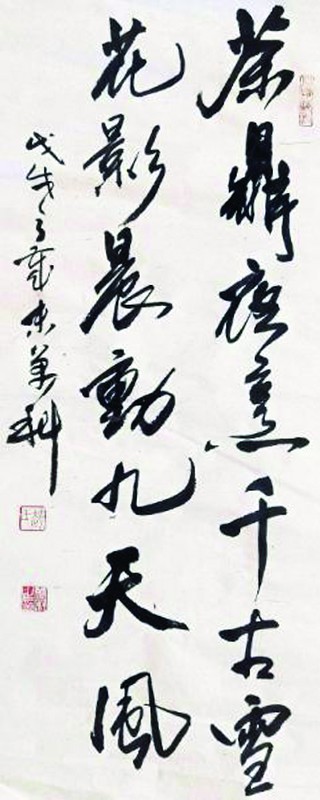 茶鼎夜烹千古雪
花影晨動九天風
戊戌之歲 萬科